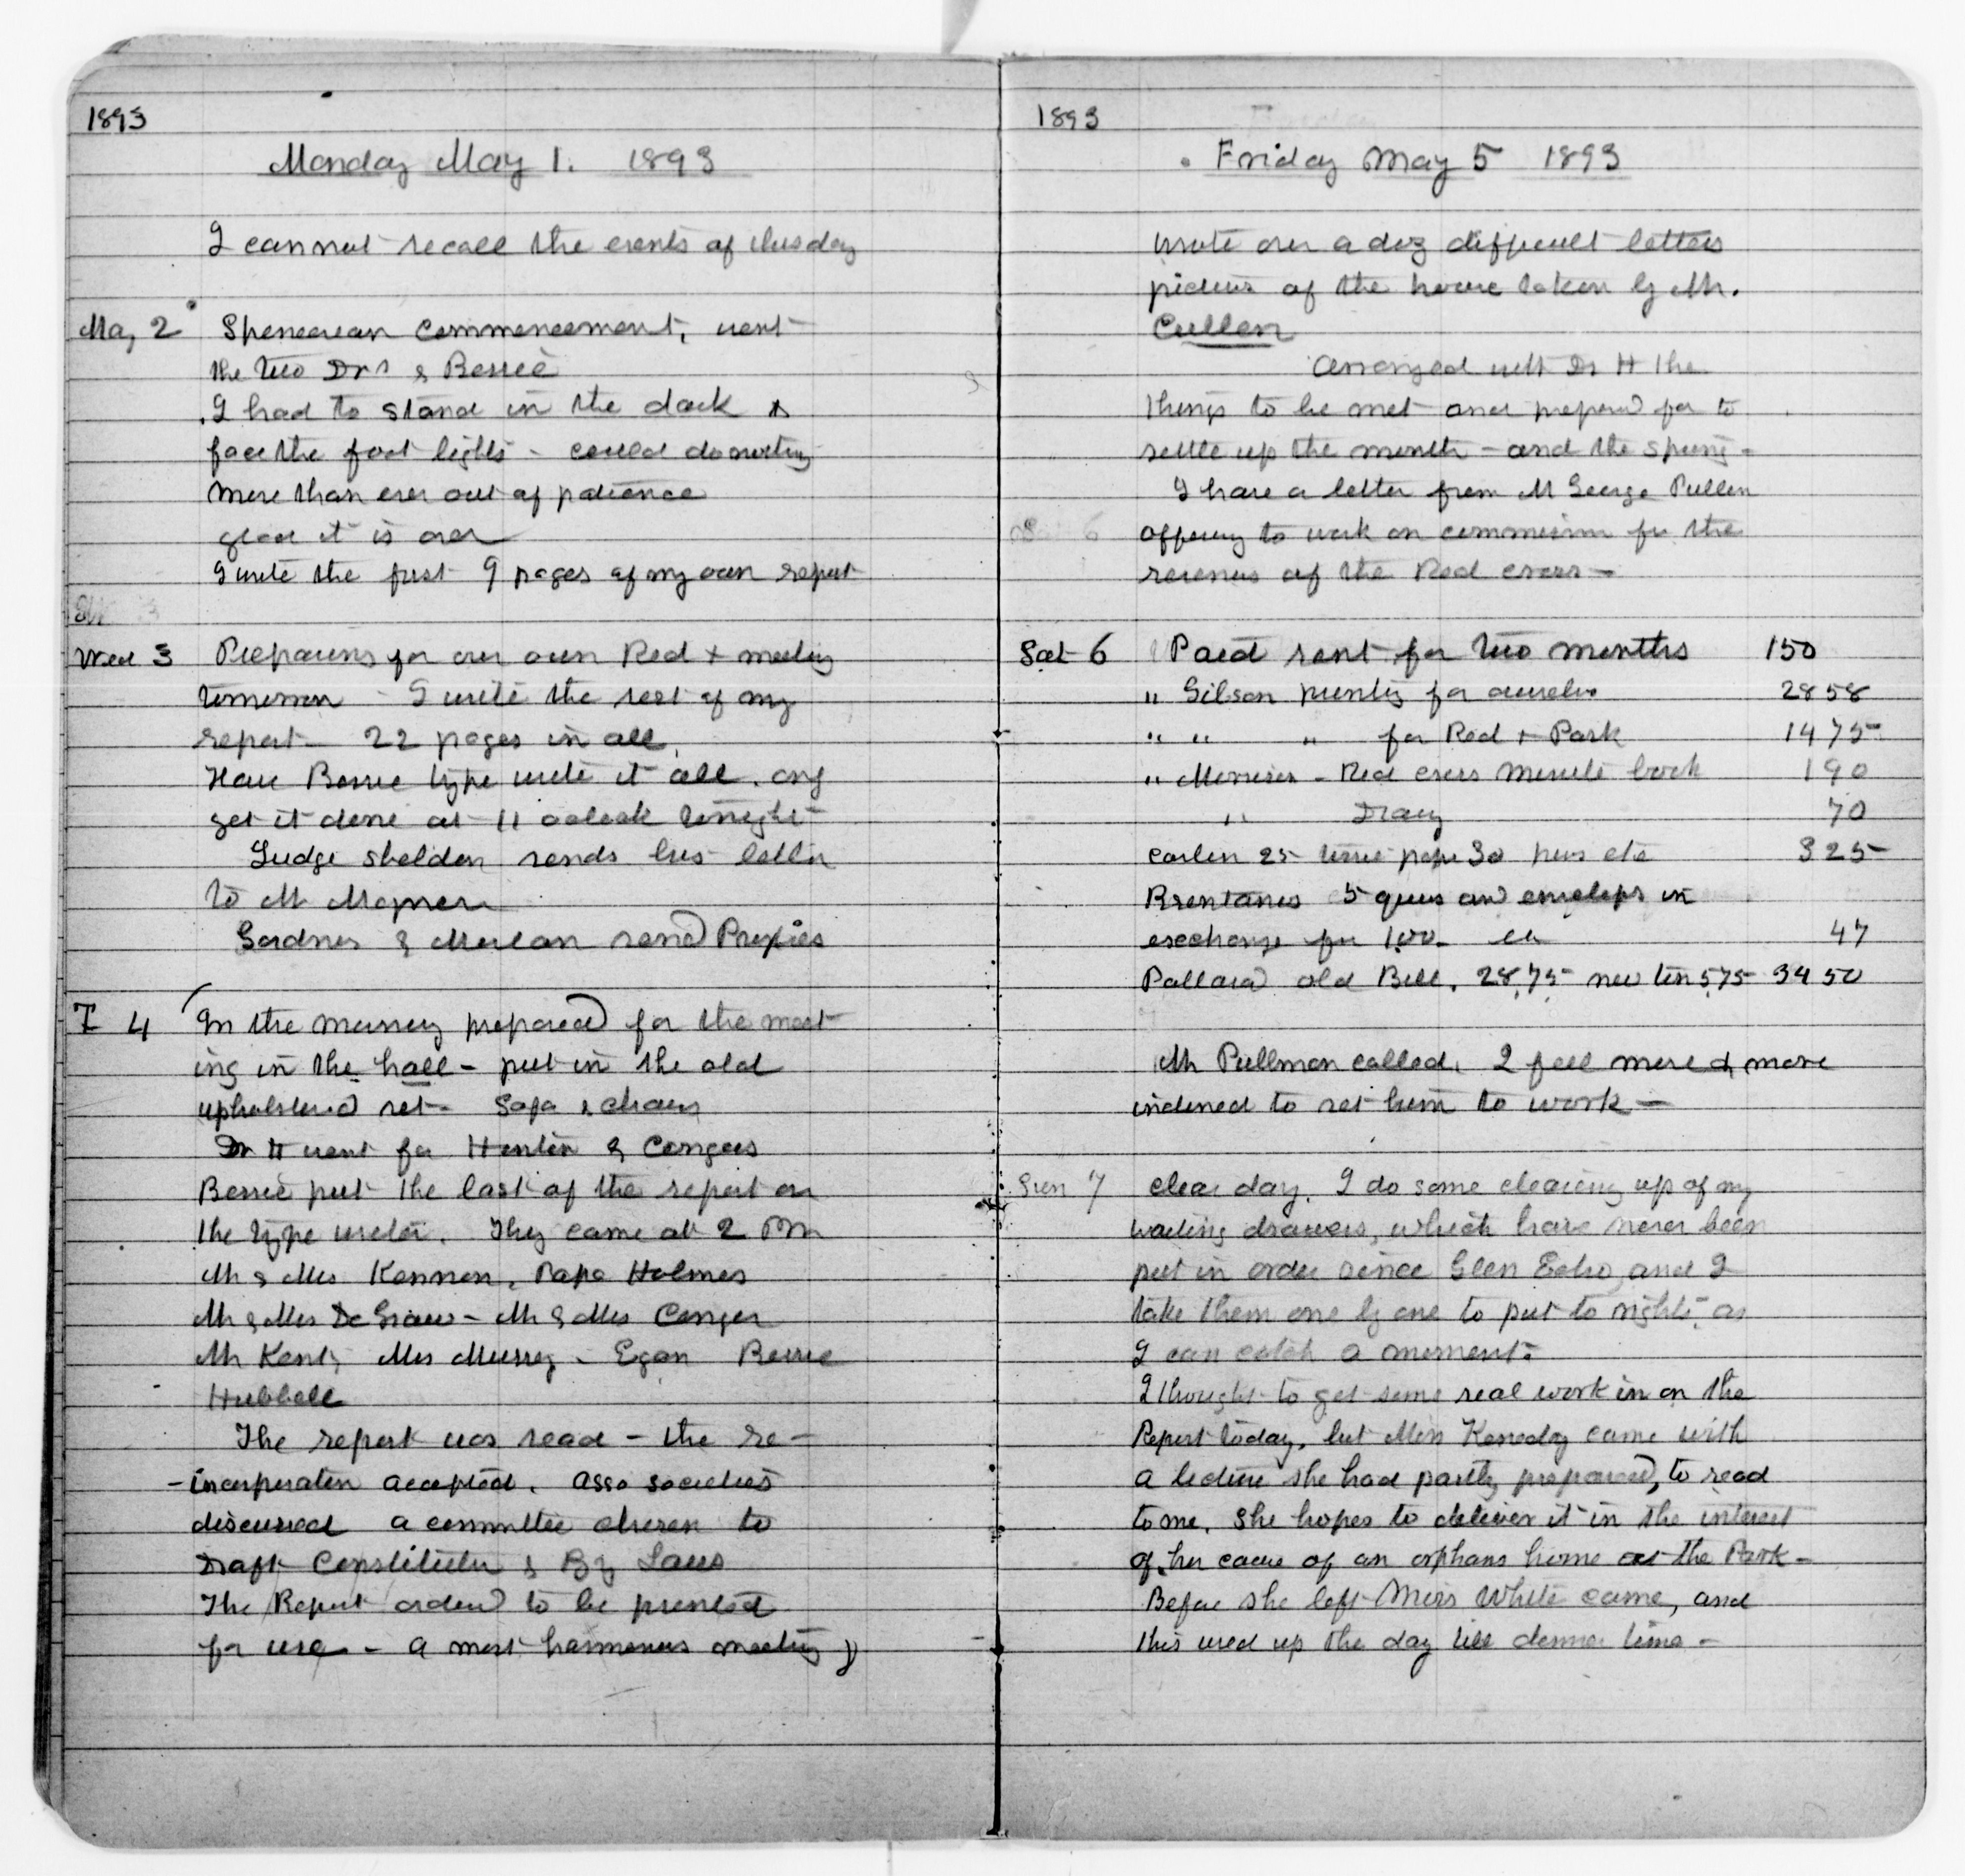 1893
Monday May 1. 1893
I cannot recall the events of tuesday
May 2 Spencerean Commencement, went
the two Drs & Bessie
I had to stand in the dark &
face the foot lights - could do nothing
more than ever out of patience
glad it is over
I write the first 9 pages of my own report
Wed 3 Preparing for our own Red + meeting
tomorrow - I write the rest of my
report - 22 pages in all.
Have Bessie type write it all. and
get it done at 11 oclock tonight -
Judge Sheldon sends his letter
to Mr
Gardner & send Proxies
T 4 In the morning prepared for the meet
ing in the hall - put in the old
upholstered set - Sofa & chairs
Dr H went for Hinton & Congers
Bessie put the last of the report on
the type writer. They came at 2 PM
Mr & Mrs Kennan, Papa Holmes
Mr & Mrs De Graw - Mr & Mrs Conger
Mr Kent, Mrs Mussey - Egan Bessie
Hubbell
The report was read - the re -
- incorporation accepted. asso societies
discussed a committee chosen to
Draft Constitution & By Laws
The Report ordered to be printed
for use - a most harmonious meeting )
1893
Friday May 5 1893
wrote over a doz difficult letters
pictures of the house taken by Mr.
Cullen
Arranged with Dr H the
things to be met and prepared for to
settle up the month - and the spring -
I have a letter from Mr George Pullen
offering to work on commission for the
revenues of the Red cross -
Sat 6 Paid rent for two months 150
" Gibson printing for 28 58
" " " for Red + Park 14 75
" Morrison - Red cross minute book 1 90
" Diary 70
25 paper 30 pens etc 3 25
Brentanos 5 quires and envelops in
exchange for 1.00. 47
Pallard old Bill. 28.75 new ten 5.75 34 50
Mr Pullman called. I feel more & more
inclined to set him to work -
Sun 7 clear day. I do some clearing up of my
writing drawers, which have never been
put in order since Glen Echo, and I
take them one by one to put to rights, as
I can catch a moment.
I thought to get some real work in on the
Report today, but Miss Kenedy came with
a lecture she had partly prepared, to read
to me. She hopes to deliver it in the interest
of her cause of an orphans home at the Park -
Before she left Miss White came, and
this used up the day till dinner time -